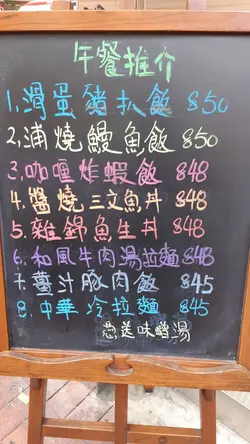 午餐推介
1.滑蛋豬扒飯 $50
2.浦燒鰻魚飯 $50
3.咖喱炸蝦飯 $48
4.醬燒三文魚丼 $48
5.雜錦魚生丼 $48
6.和風牛肉湯拉麵 $48
7.薑汁豚肉飯 $45
8.中華冷拉麵 $45
惠送味噌湯